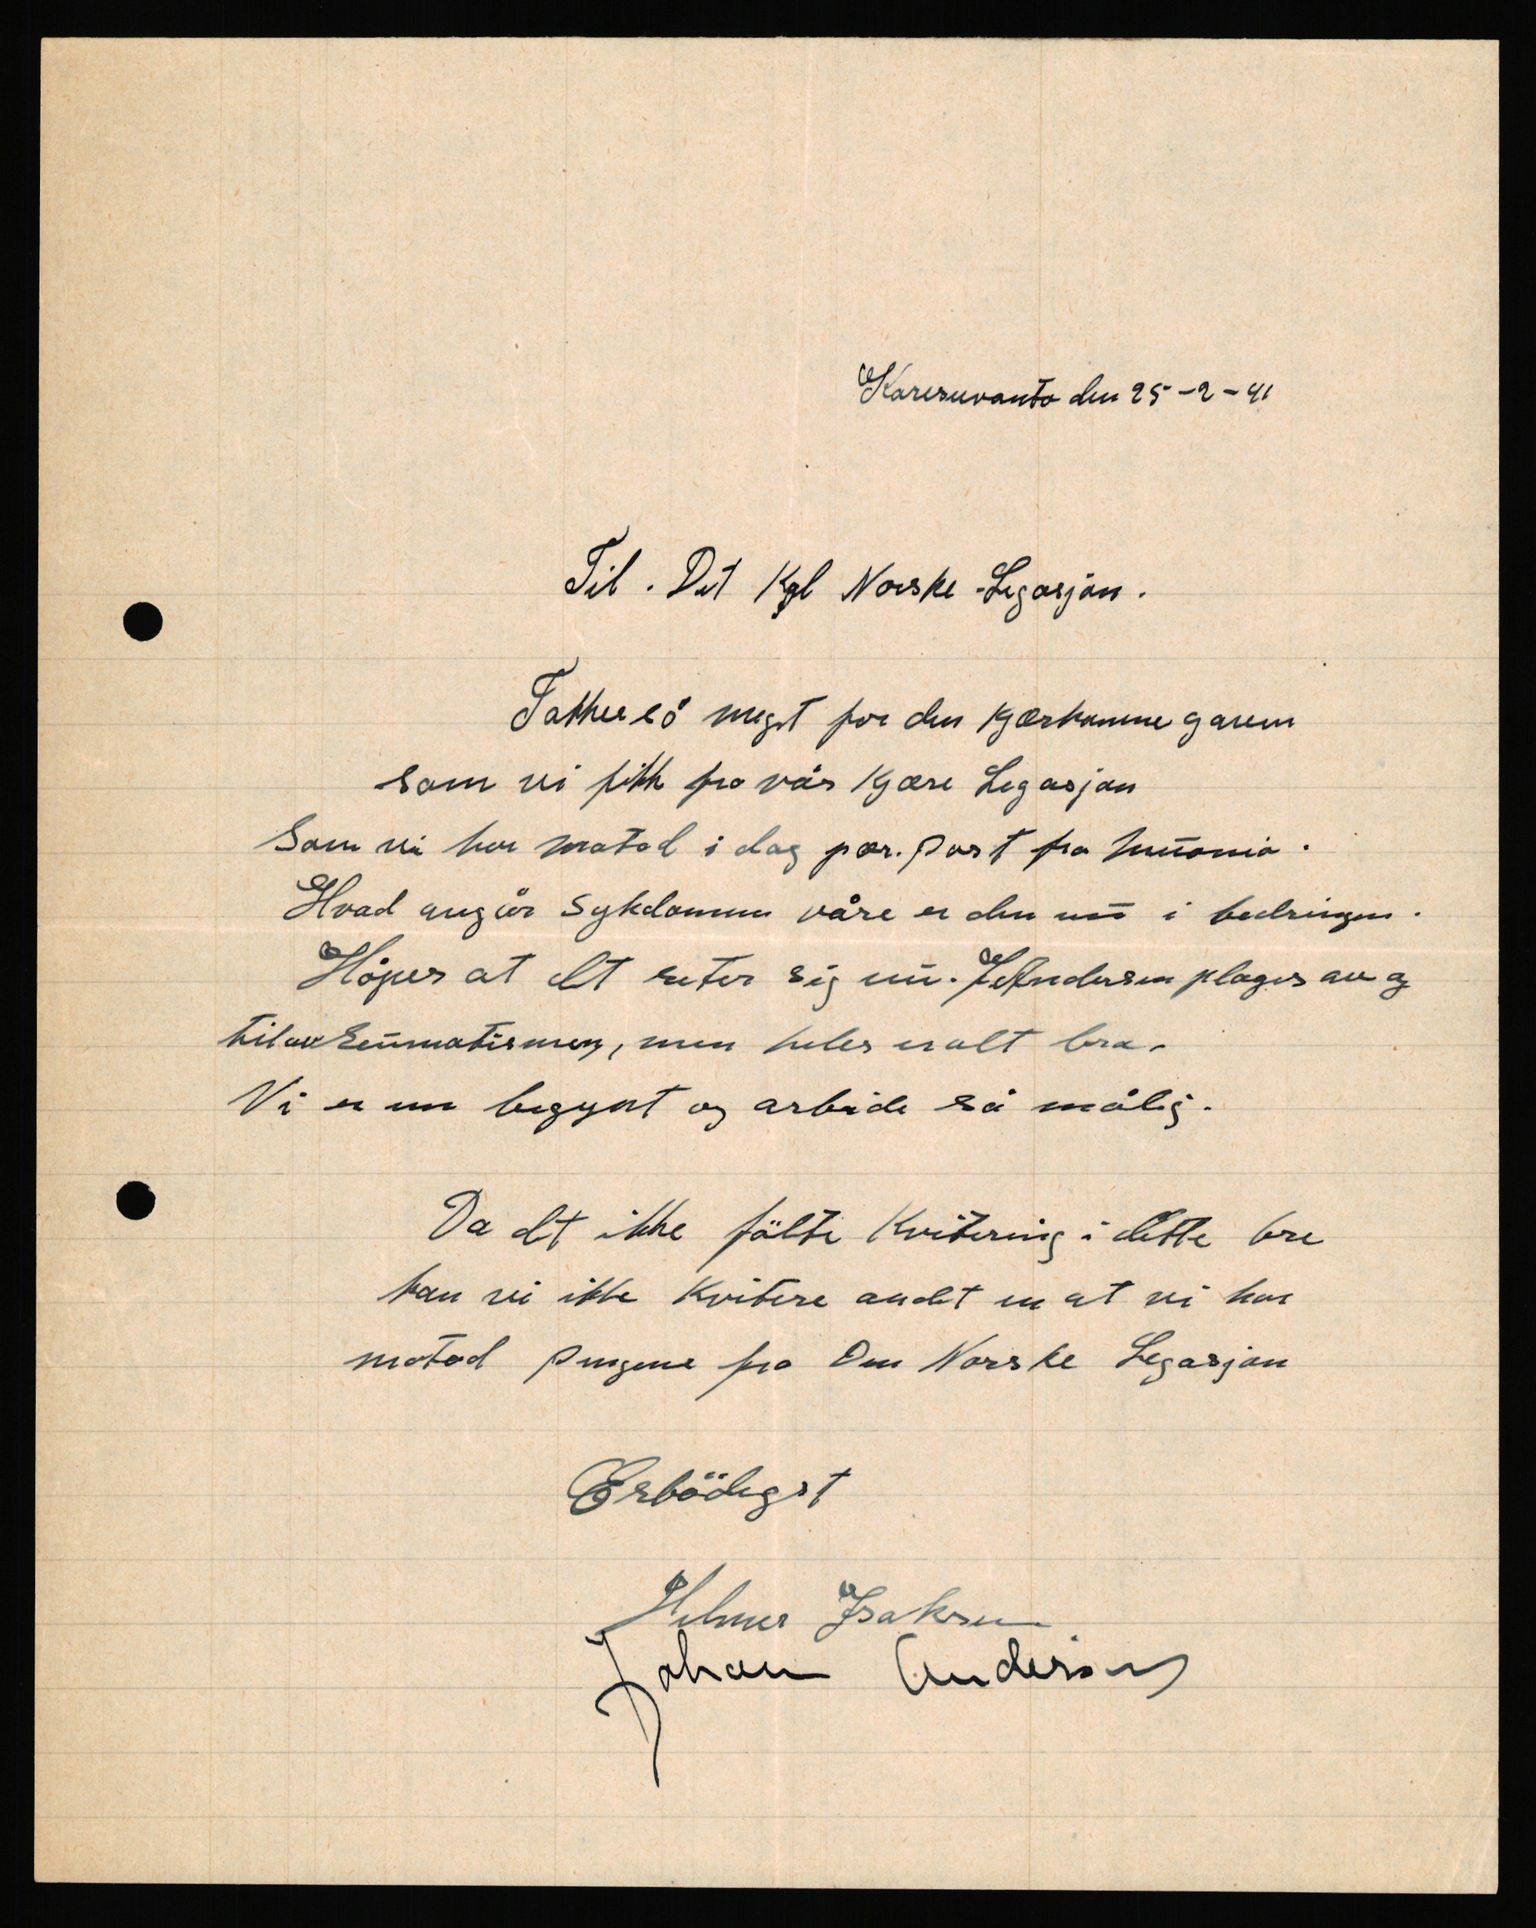 Karesuvanto den 25-2-41
Til. Det Kgl Norske-Legasjon.
Takker så meget for den kjærkomne gaven
som vi fikk fra vår kjære Legasjon
Som vi har motad i dag pær. Post fra Muonio.
Hvad angår sykdommen våre er den nu i bedringen.
Håper at dt reter sig nu. J. Andersen plages av og
til av Reumatismen, men heles er alt bra.
Vi er nu begynt og arbide så målig.
Da dt ikke fölte Kvitering i dette bre
kan vi ikke Kvitere andt en at vi har
motad Pengene fra Den Norske Legasjon
Erbödigst
Hilmer Isaksen
Johan Andersen